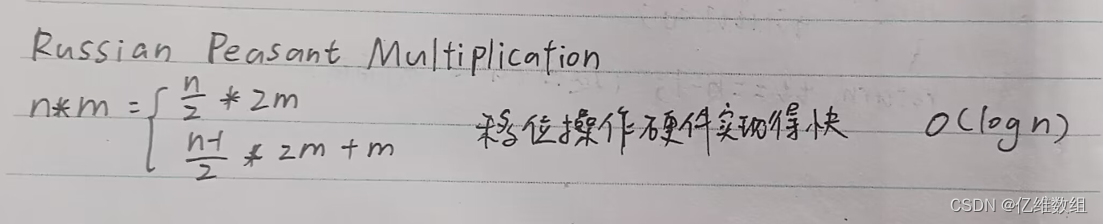 Russian Peasant Multiplication
n*m = { n/2 * 2m
(n-1)/2 * 2m + m 移位操作硬件实现得快 O(log n)
CSDN @亿维数组